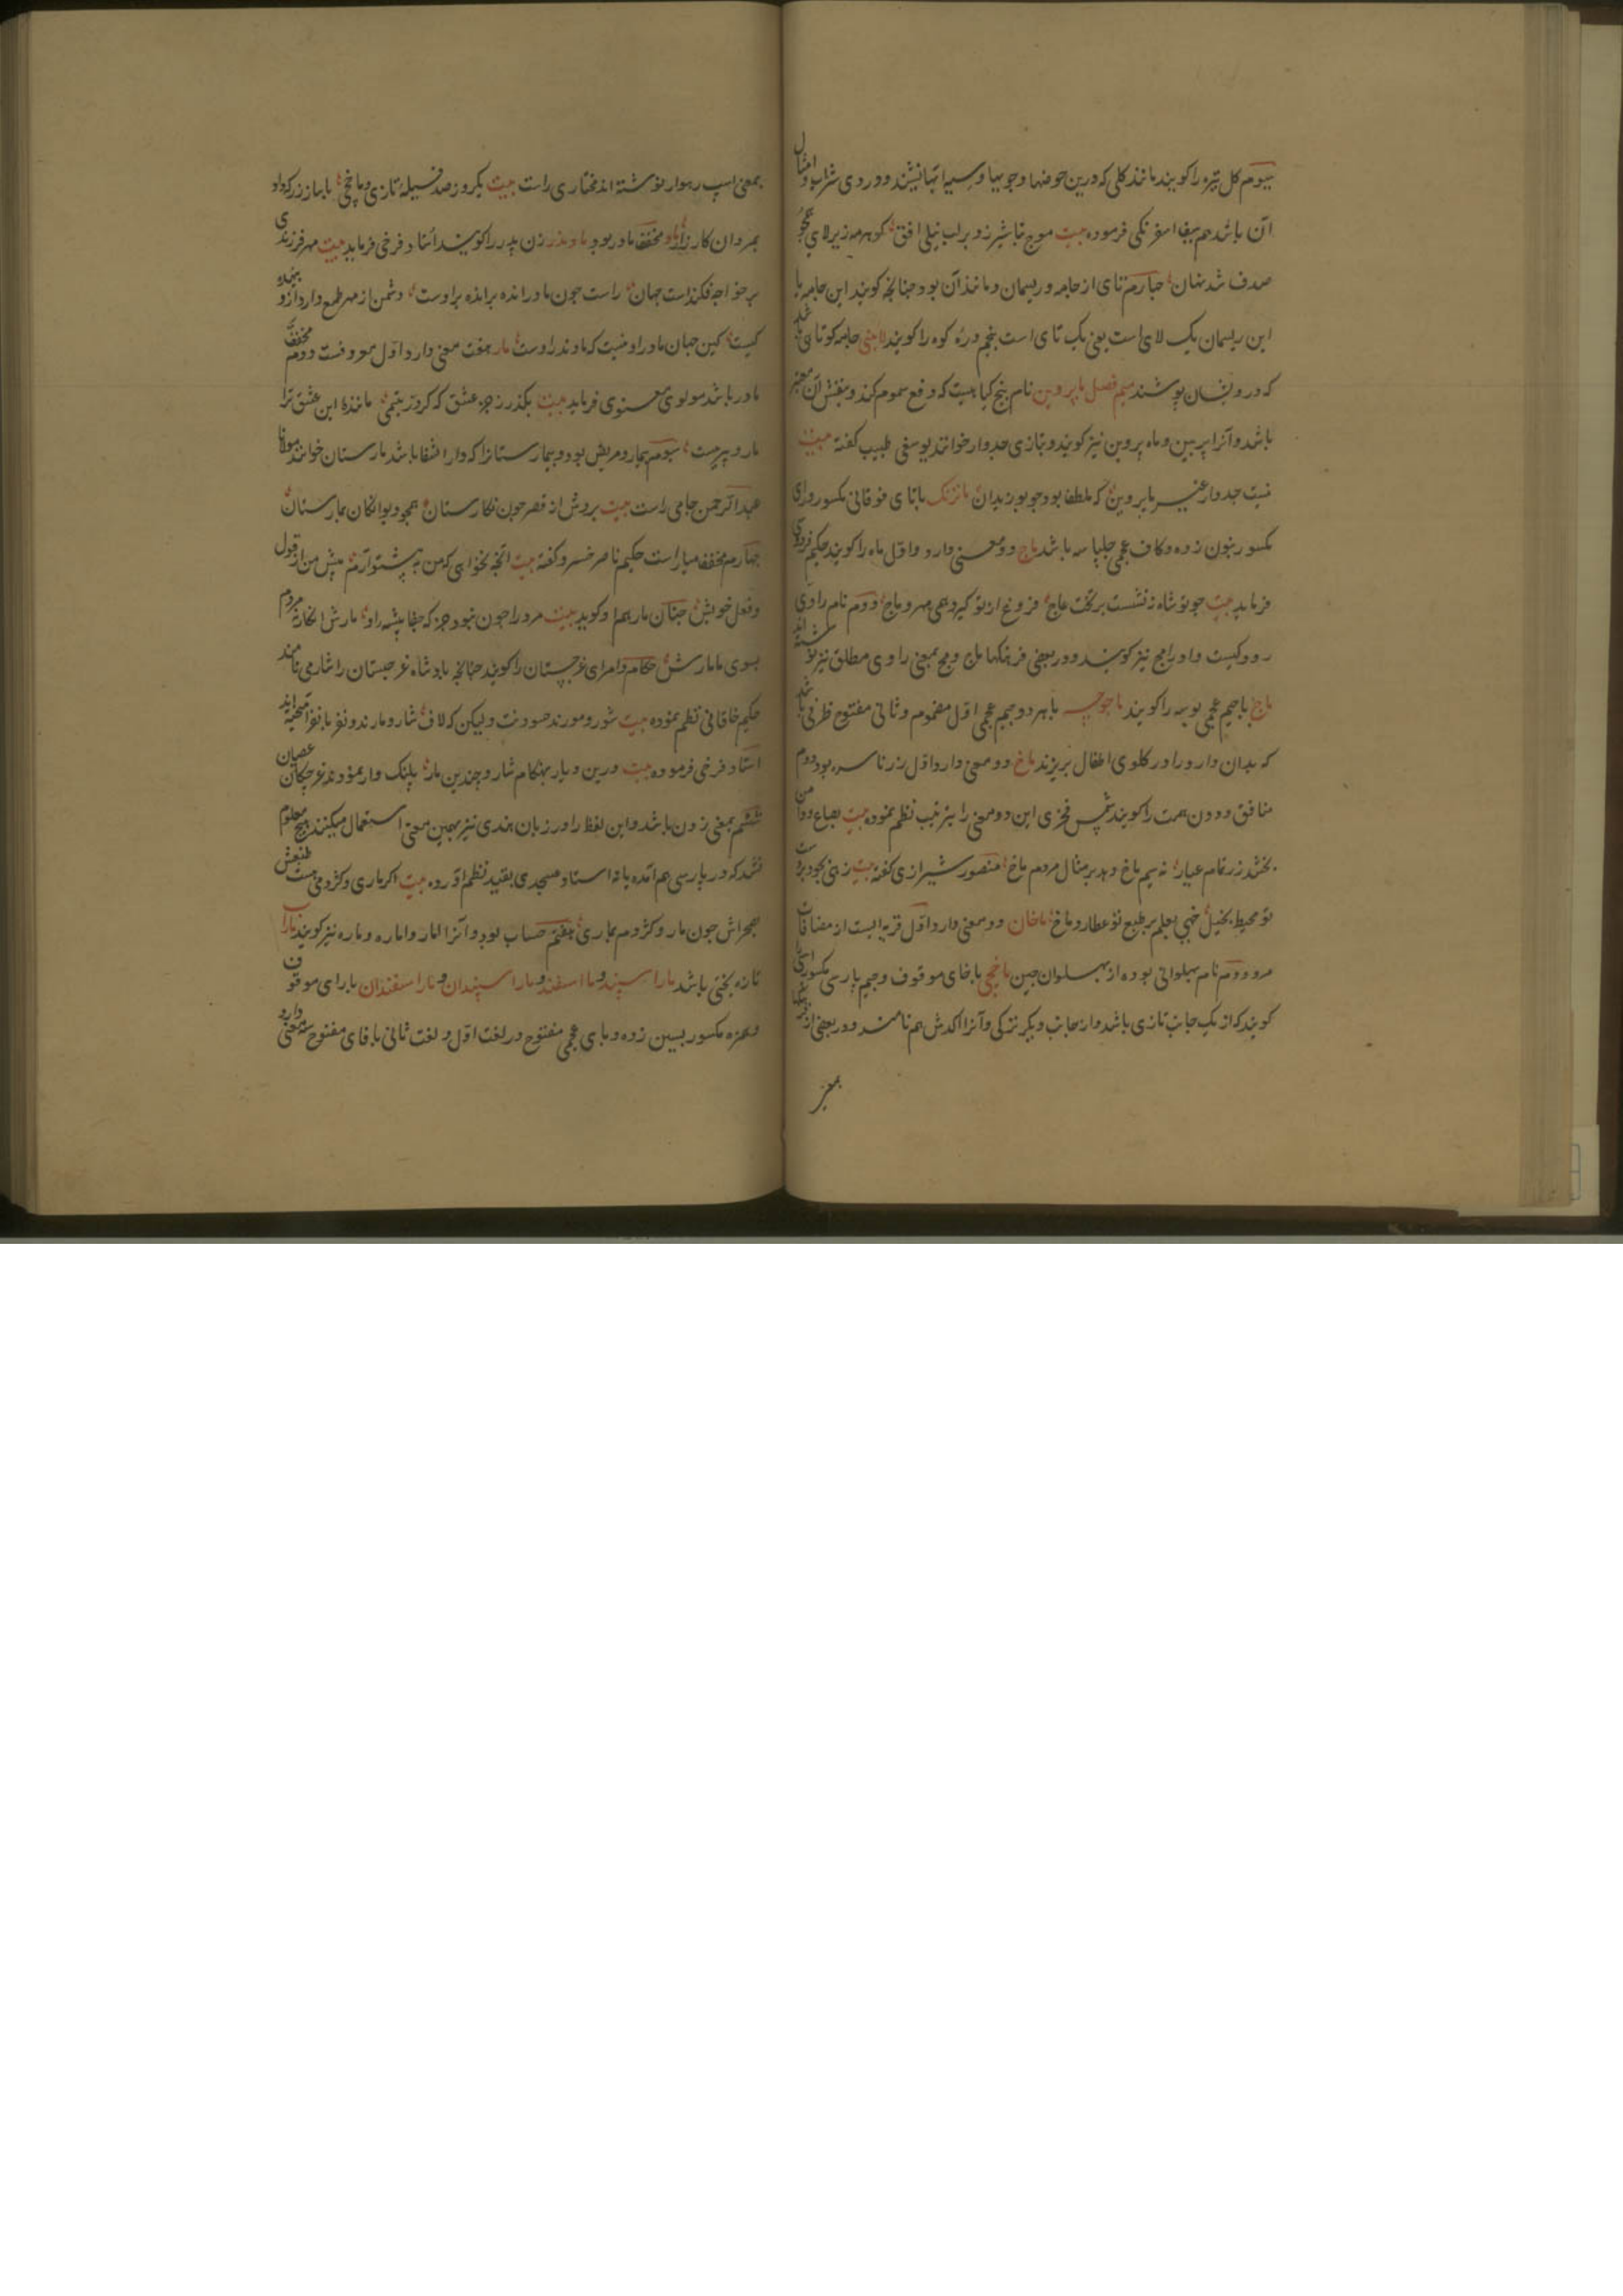 سیوم کل تیره را کویند مانند کلی که در بن حوضها و جویها و سیرابها نشیند و دردی شراب و امثال
آن باشد هم سیف اسفرنکی فرموده بیت موج تباشیر زد بر لب نیلی افق کوهر مه زیر لای همچو
صدف شد نهان چهارم تای از جامه و ریسمان و مانند آن بود چنانچه کویند این جامه یا
این ریسمان یک لای است یعنی یک تای است پنجم دره کوه را کویند لایی جامه کوتا می باشد
که درویشان پوشند میم فصل ماپروین نام بیخ کیاهیست که دفع سموم کند و بنفش آن معتبر
باشد و آنرا پربین و ماه پروین نیز کویند و بتازی جدوار خوانند یوسفی طبیب کفته بیت
نیست جدوار غیر ماپروین که ملطف بود چو بوزیدان ماترنک با تای فوقانی مکسور و رای
مکسور بنون زده و کاف عجمی چلپاسه باشد ماج دو معنی دارد اول ماه را کویند حکیم فردوسی
فرماید بیت چو تو شاه ننشست بر تخت عاج فروغ از تو کیرد همی مهر و ماج دوم نام راوی
رودکیست و او را مج نیز کویند و در بعضی فرهنکها ماج و مج بمعنی راوی مطلق نیز نوشته اند
ماچ با جیم عجمی بوسه را کویند ماچوچه با هر دو جیم عجمی اول مضموم و ثانی مفتوح ظرفی باشد
که بدان دارو را در کلوی اطفال بریزند ماخ دو معنی دارد اول زر ناسره بود دوم
منافق و دون همت را کویند شمس فخری این دو معنی را بترتیب نظم نموده بیت بصاع و دو من
بخشد زر تمام عیار نه سیم ماخ و بد بر مثال مردم ماخ منصور شیرازی کفته بیت زهی بجود بر دست
تو محیط بخیل خهی بعلم بر طبع تو عطارد ماخ ماخان دو معنی دارد اول قریه ایست از مضافات
مرو دوم نام پهلوانی بوده از پهلوانان چین ماخچی با خای موقوف و جیم پارسی مکسور اسپی را
کویند که از یک جانب تازی باشد و از جانب دیکر ترکی و آنرا اکدش هم نامند و در بعضی از فرهنکها
بمعنی
بمعنی اسپ رهوار نوشته اند مختاری راست بیت یکروز صد فسیله تازی و ماخچی با ساز زر که داد
بمردان کارزار ماد مخفف مادر بود مادندر زن پدر را کویند استاد فرخی فرماید بیت مهر فرزندی
بر خواجه فکندست جهان راست چون مادر انده برانده براوست دشمن از مهر طمع دارد ازو بیهده
کیست کین جهان مادر او نیست که مادندر اوست مار هفت معنی دارد اول معروفست دوم مخفف
مادر باشد مولوی معنوی فرماید بیت بکذر ز جز عشق که کر در یتیمی مانند این عشق ترا
مار و پدر نیست سیوم بیمار و مریض بود و بیمارستانرا که دارالشفا باشد مارستان خوانند مولانا
عبدالرحمن جامی راست بیت بردش از قصر چون نکارستان همچو دیوانکان بمارستان
چهارم مخفف میار است حکیم ناصر خسرو کفته بیت آنچه نخواهی که من به پشتو آرم پیش من از قول
و فعل خویش چنان مار هم او کوید بیت مرد را چون نبود جز که جفا پیشه او مارش انکار نه مردم
بسوی ما مارش پنجم حکام و امرای غرجستان را کویند چنانچه پادشاه غرجستان را شار می نامند
حکیم خاقانی نظم نموده بیت شور و مورند حسودانت ولیکن که لاف شار و مارند و نفر با نفر آمیخته اند
استاد فرخی فرموده بیت درین دیار بهنکام شار و چندین مار پلنک وار نمودند غرچکان عصیان
ششم بمعنی زدن باشد و این لفظ را در زبان هندی نیز بهمین معنی استعمال میکنند هیچ معلوم
نشد که در پارسی هم آمده یا نه استاد عسجدی بقید نظم آورده بیت اکر ماری و کژدمی هست طبعش
بصحراش چون مار و کژدم بماری هفتم حساب بود و آنرا امار و اماره و ماره نیز کویند ماراب
تازه بختی باشد مارا سپند و مارا سفند و مارا سپندان و مارا سفندان با رای موقوف
و همزه مکسور بسین زده و بای عجمی مفتوح در لغت اول و لغت ثانی با فای مفتوح سه معنی دارد